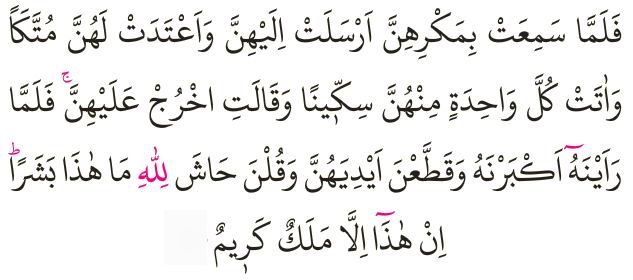 فَلَمَّا سَمِعَتْ بِمَكْرِهِنَّ اَرْسَلَتْ اِلَيْهِنَّ وَاَعْتَدَتْ لَهُنَّ مُتَّكَاً
وَاٰتَتْ كُلَّ وَاحِدَةٍ مِنْهُنَّ سِكّ۪ينًا وَقَالَتِ اخْرُجْ عَلَيْهِنَّۚ فَلَمَّا
رَاَيْنَهُٓ اَكْبَرْنَهُ وَقَطَّعْنَ اَيْدِيَهُنَّ وَقُلْنَ حَاشَ لِلّٰهِ مَا هٰذَا بَشَرًاۜ
اِنْ هٰذَٓا اِلَّا مَلَكٌ كَر۪يمٌ